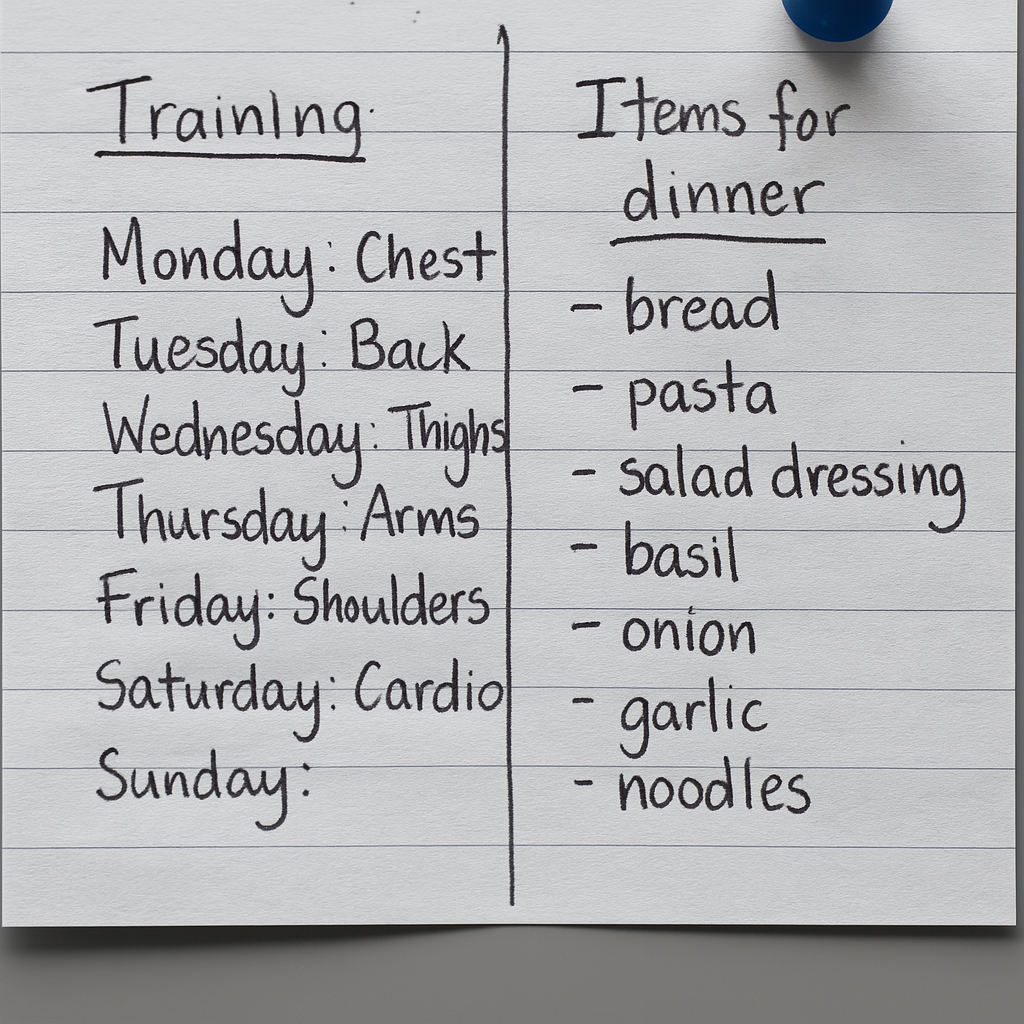 TrainIng
Monday: Chest
Tuesday: Back
Wednesday: Thighs
Thursday: Arms
Friday: Shoulders
Saturday: Cardio
Sunday:
Items for
dinner
- bread
- pasta
- salad dressing
- basil
- onion
- garlic
- noodles